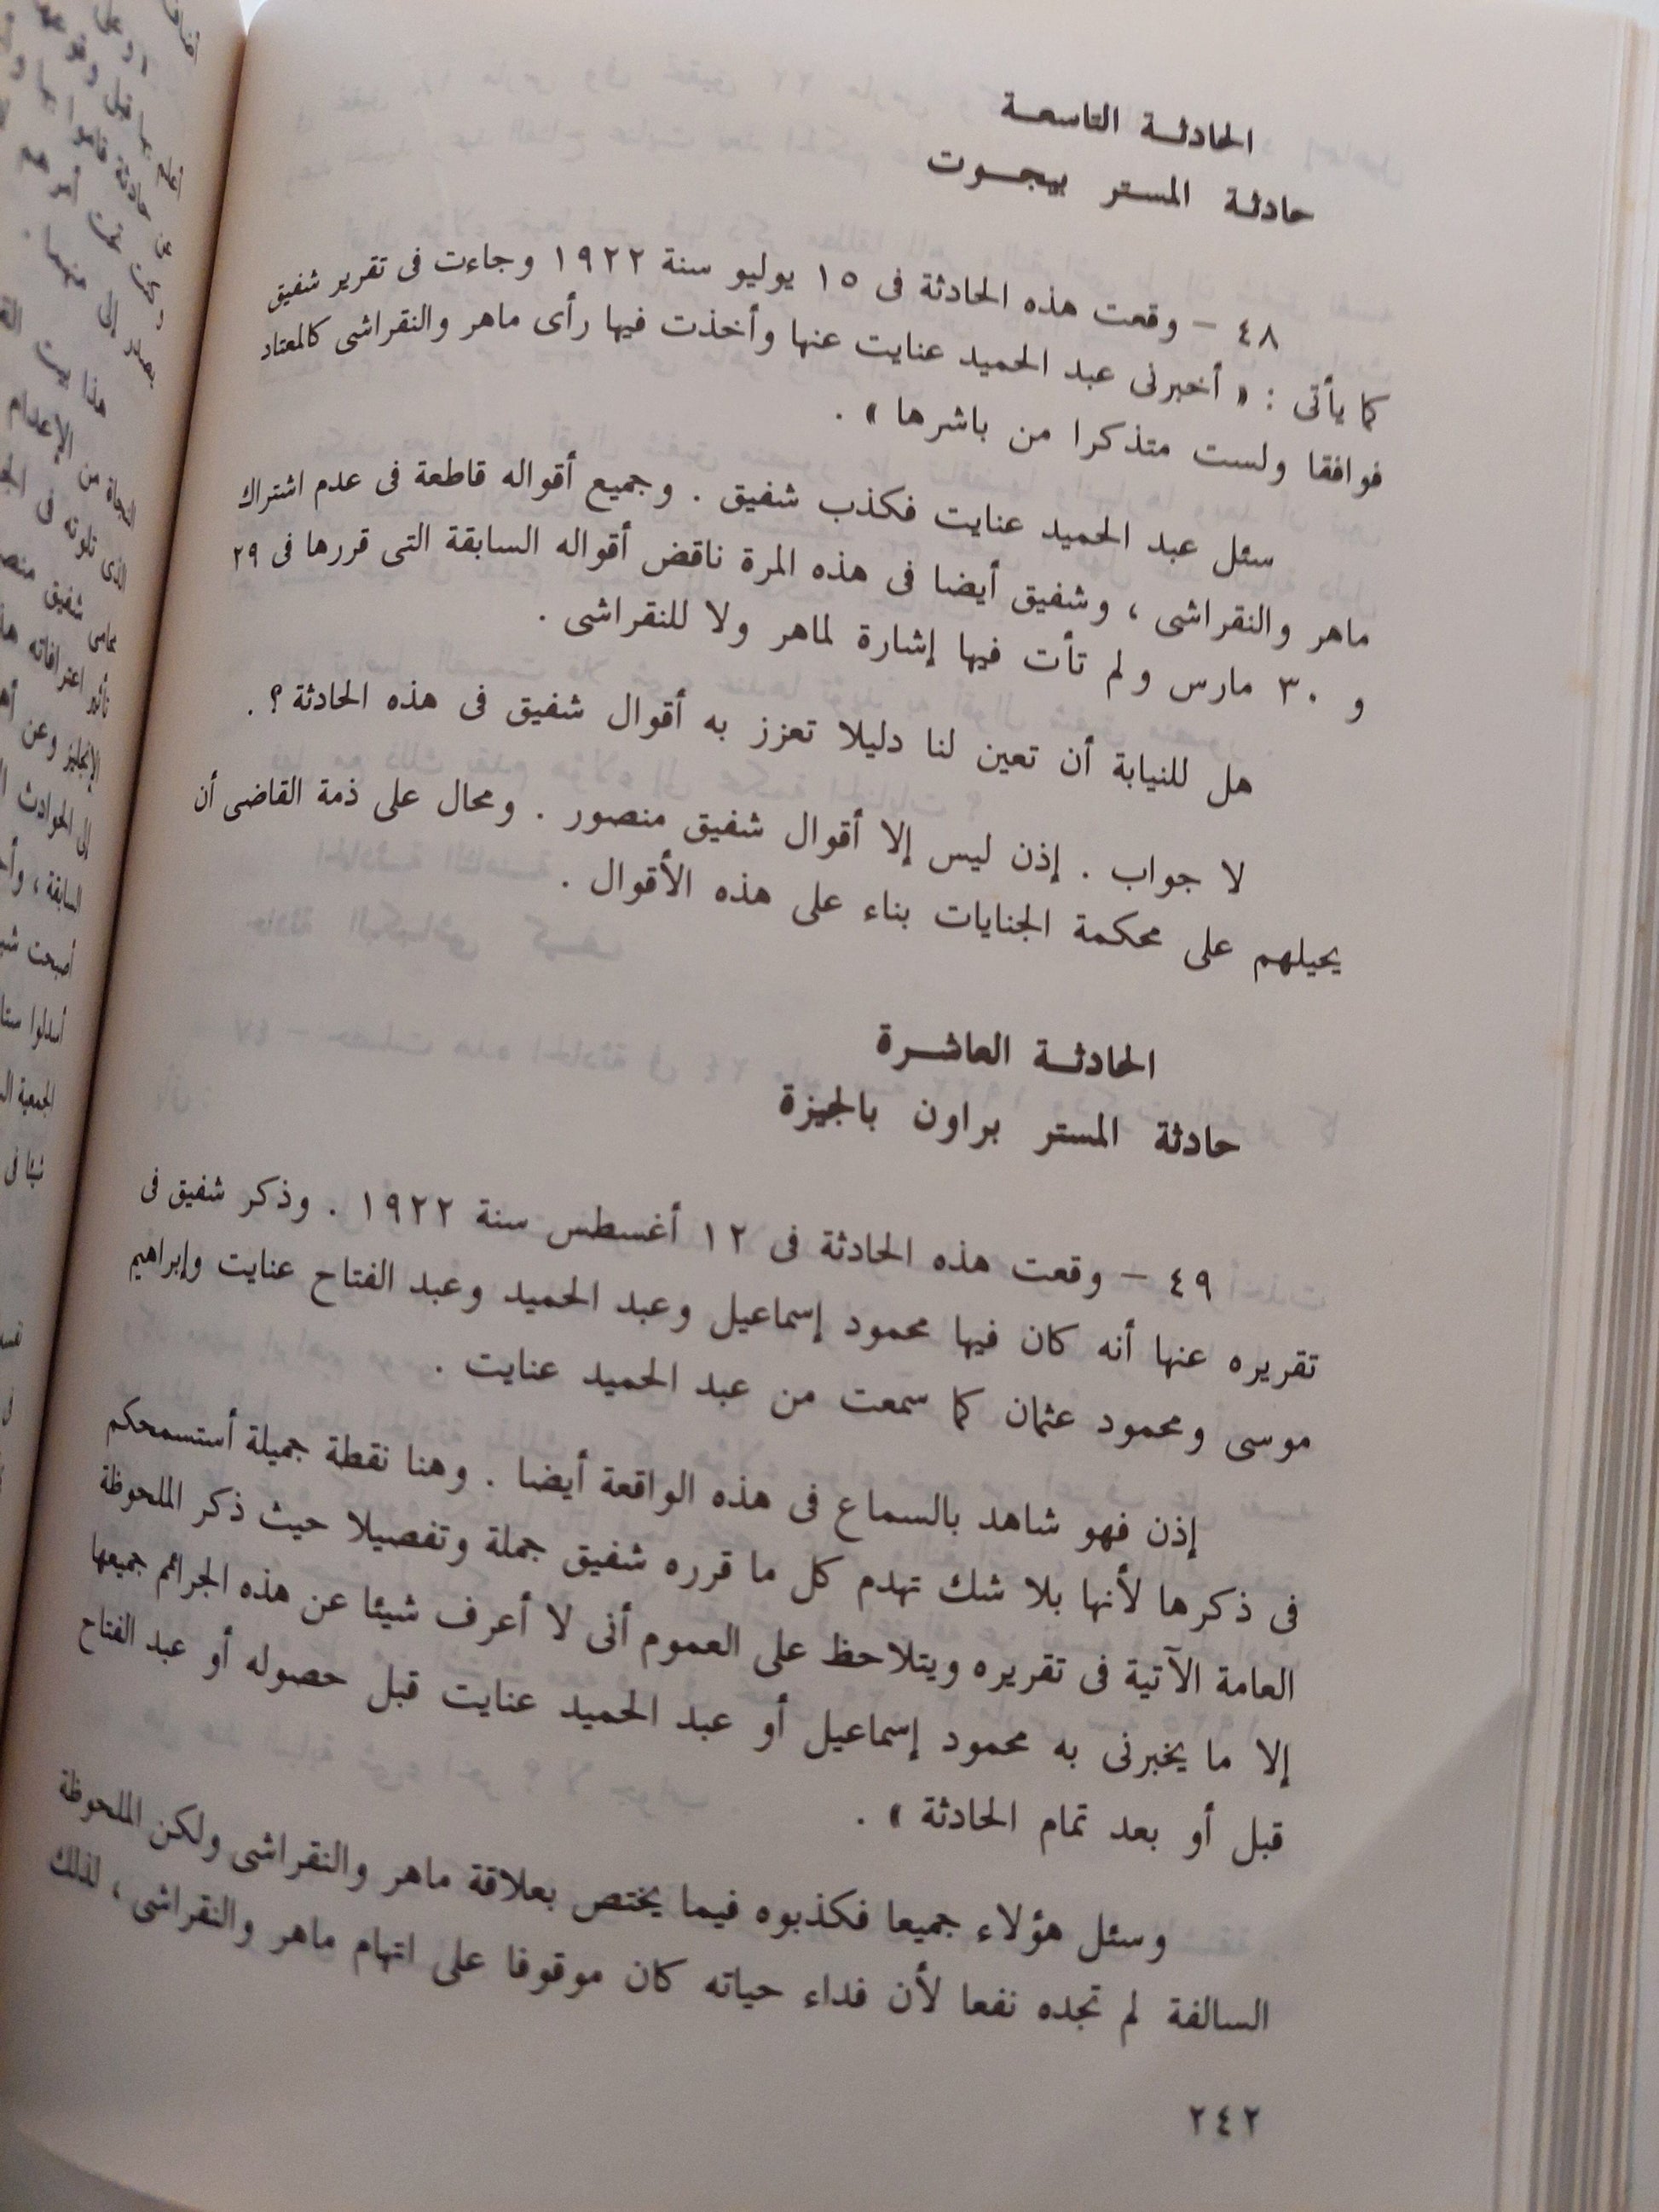 الحادثة التاسعة
حادثة المستر بيجوت
٤٨ – وقعت هذه الحادثة فى ١٥ يوليو سنة ١٩٢٢ وجاءت فى تقرير شفيق
كما يأتى : « أخبرنى عبد الحميد عنايت عنها وأخذت فيها رأى ماهر والنقراشى كالمعتاد
فوافقا ولست متذكرا من باشرها » .
سئل عبد الحميد عنايت فكذب شفيق . وجميع أقواله قاطعة فى عدم اشتراك
ماهر والنقراشى ، وشفيق أيضا فى هذه المرة ناقض أقواله السابقة التى قررها فى ٢٩
و ٣٠ مارس ولم تأت فيها إشارة لماهر ولا للنقراشى .
هل للنيابة أن تعين لنا دليلا تعزز به أقوال شفيق فى هذه الحادثة ؟ .
لا جواب . إذن ليس إلا أقوال شفيق منصور . ومحال على ذمة القاضى أن
يحيلهم على محكمة الجنايات بناء على هذه الأقوال .
الحادثة العاشرة
حادثة المستر براون بالجيزة
٤٩ – وقعت هذه الحادثة فى ١٢ أغسطس سنة ١٩٢٢ . وذكر شفيق فى
تقريره عنها أنه كان فيها محمود إسماعيل وعبد الحميد وعبد الفتاح عنايت وإبراهيم
موسى ومحمود عثمان كما سمعت من عبد الحميد عنايت .
إذن فهو شاهد بالسماع فى هذه الواقعة أيضا . وهنا نقطة جميلة أستسمحكم
فى ذكرها لأنها بلا شك تهدم كل ما قرره شفيق جملة وتفصيلا حيث ذكر الملحوظة
العامة الآتية فى تقريره ويتلاحظ على العموم أنى لا أعرف شيئا عن هذه الجرائم جميعها
إلا ما يخبرنى به محمود إسماعيل أو عبد الحميد عنايت قبل حصوله أو عبد الفتاح
قبل أو بعد تمام الحادثة » .
وسئل هؤلاء جميعا فكذبوه فيما يختص بعلاقة ماهر والنقراشى ولكن الملحوظة
السالفة لم تجده نفعا لأن فداء حياته كان موقوفا على اتهام ماهر والنقراشى ، لذلك
٢٤٢